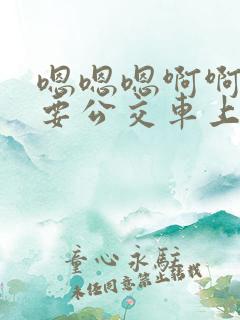 嗯嗯嗯啊啊
要公交車上
童心永駐
未经同意禁止转载